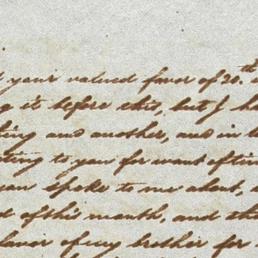 your valued favor of 20th
g it before this, but I ha
thing and another, and in
ting to you for want of tim
an spoke to me about
t of this month, and th
of my brother for